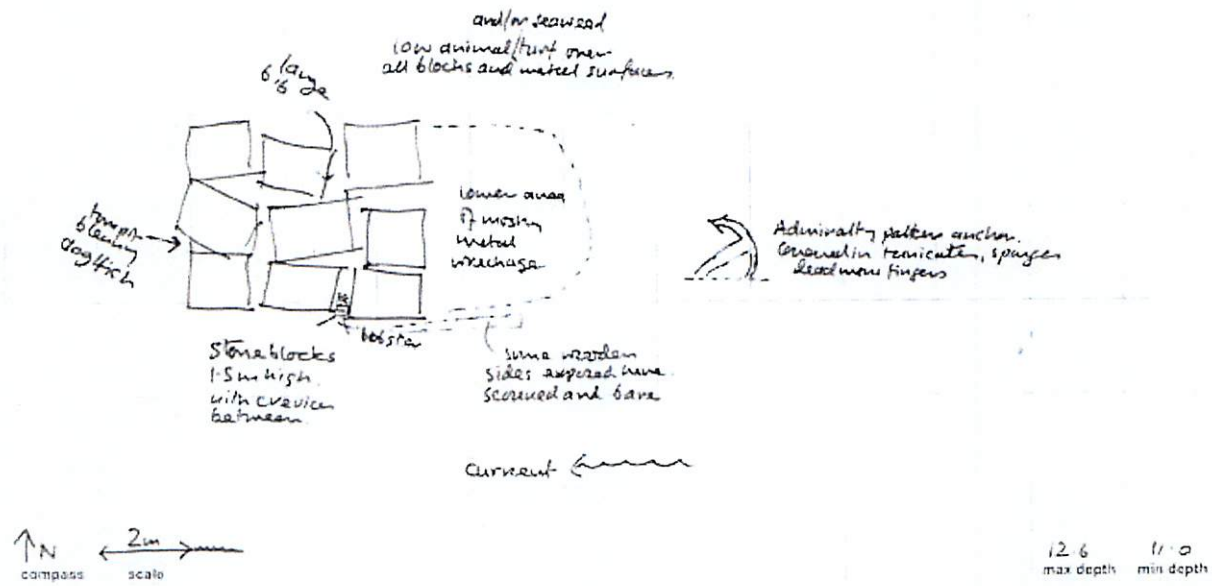 and/or seaweed
low animal/turf over
all blocks and metal surfaces.
large
lower area
of mostly
metal
wreckage
Admiralty pattern anchor.
Covered in tunicates, sponges
dead mens fingers
tompot
blenny
dogfish
lobster
Stone blocks
1.5m high.
with crevices
between.
some wooden
sides exposed here.
scoured and bare
current
N
compass
2m
scale
12.6
max depth
11.0
min depth